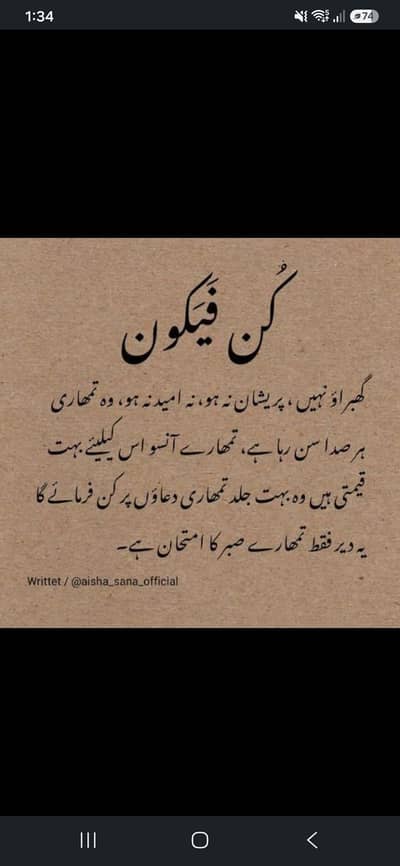 1:34
74
کُن فَیَکون
گھبراؤ نہیں، پریشان نہ ہو، نہ امید نہ ہو، وہ تمھاری
ہر صدا سن رہا ہے، تمھارے آنسو اس کیلیئے بہت
قیمتی ہیں وہ بہت جلد تمھاری دعاؤں پر کن فرمائے گا
یہ دیر فقط تمھارے صبر کا امتحان ہے۔
Writtet / @aisha_sana_official